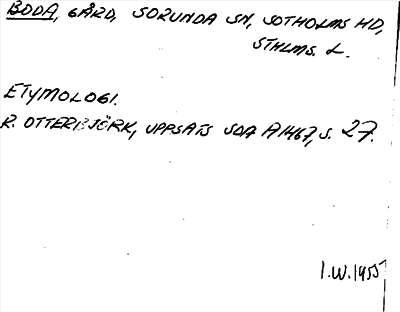 BODA, GÅRD, SORUNDA SN, SOTHOLMS HD,
STHLMS. L.
ETYMOLOGI.
R. OTTERBJÖRK, UPPSATS SOA A1467, S. 27.
I.W. 1955